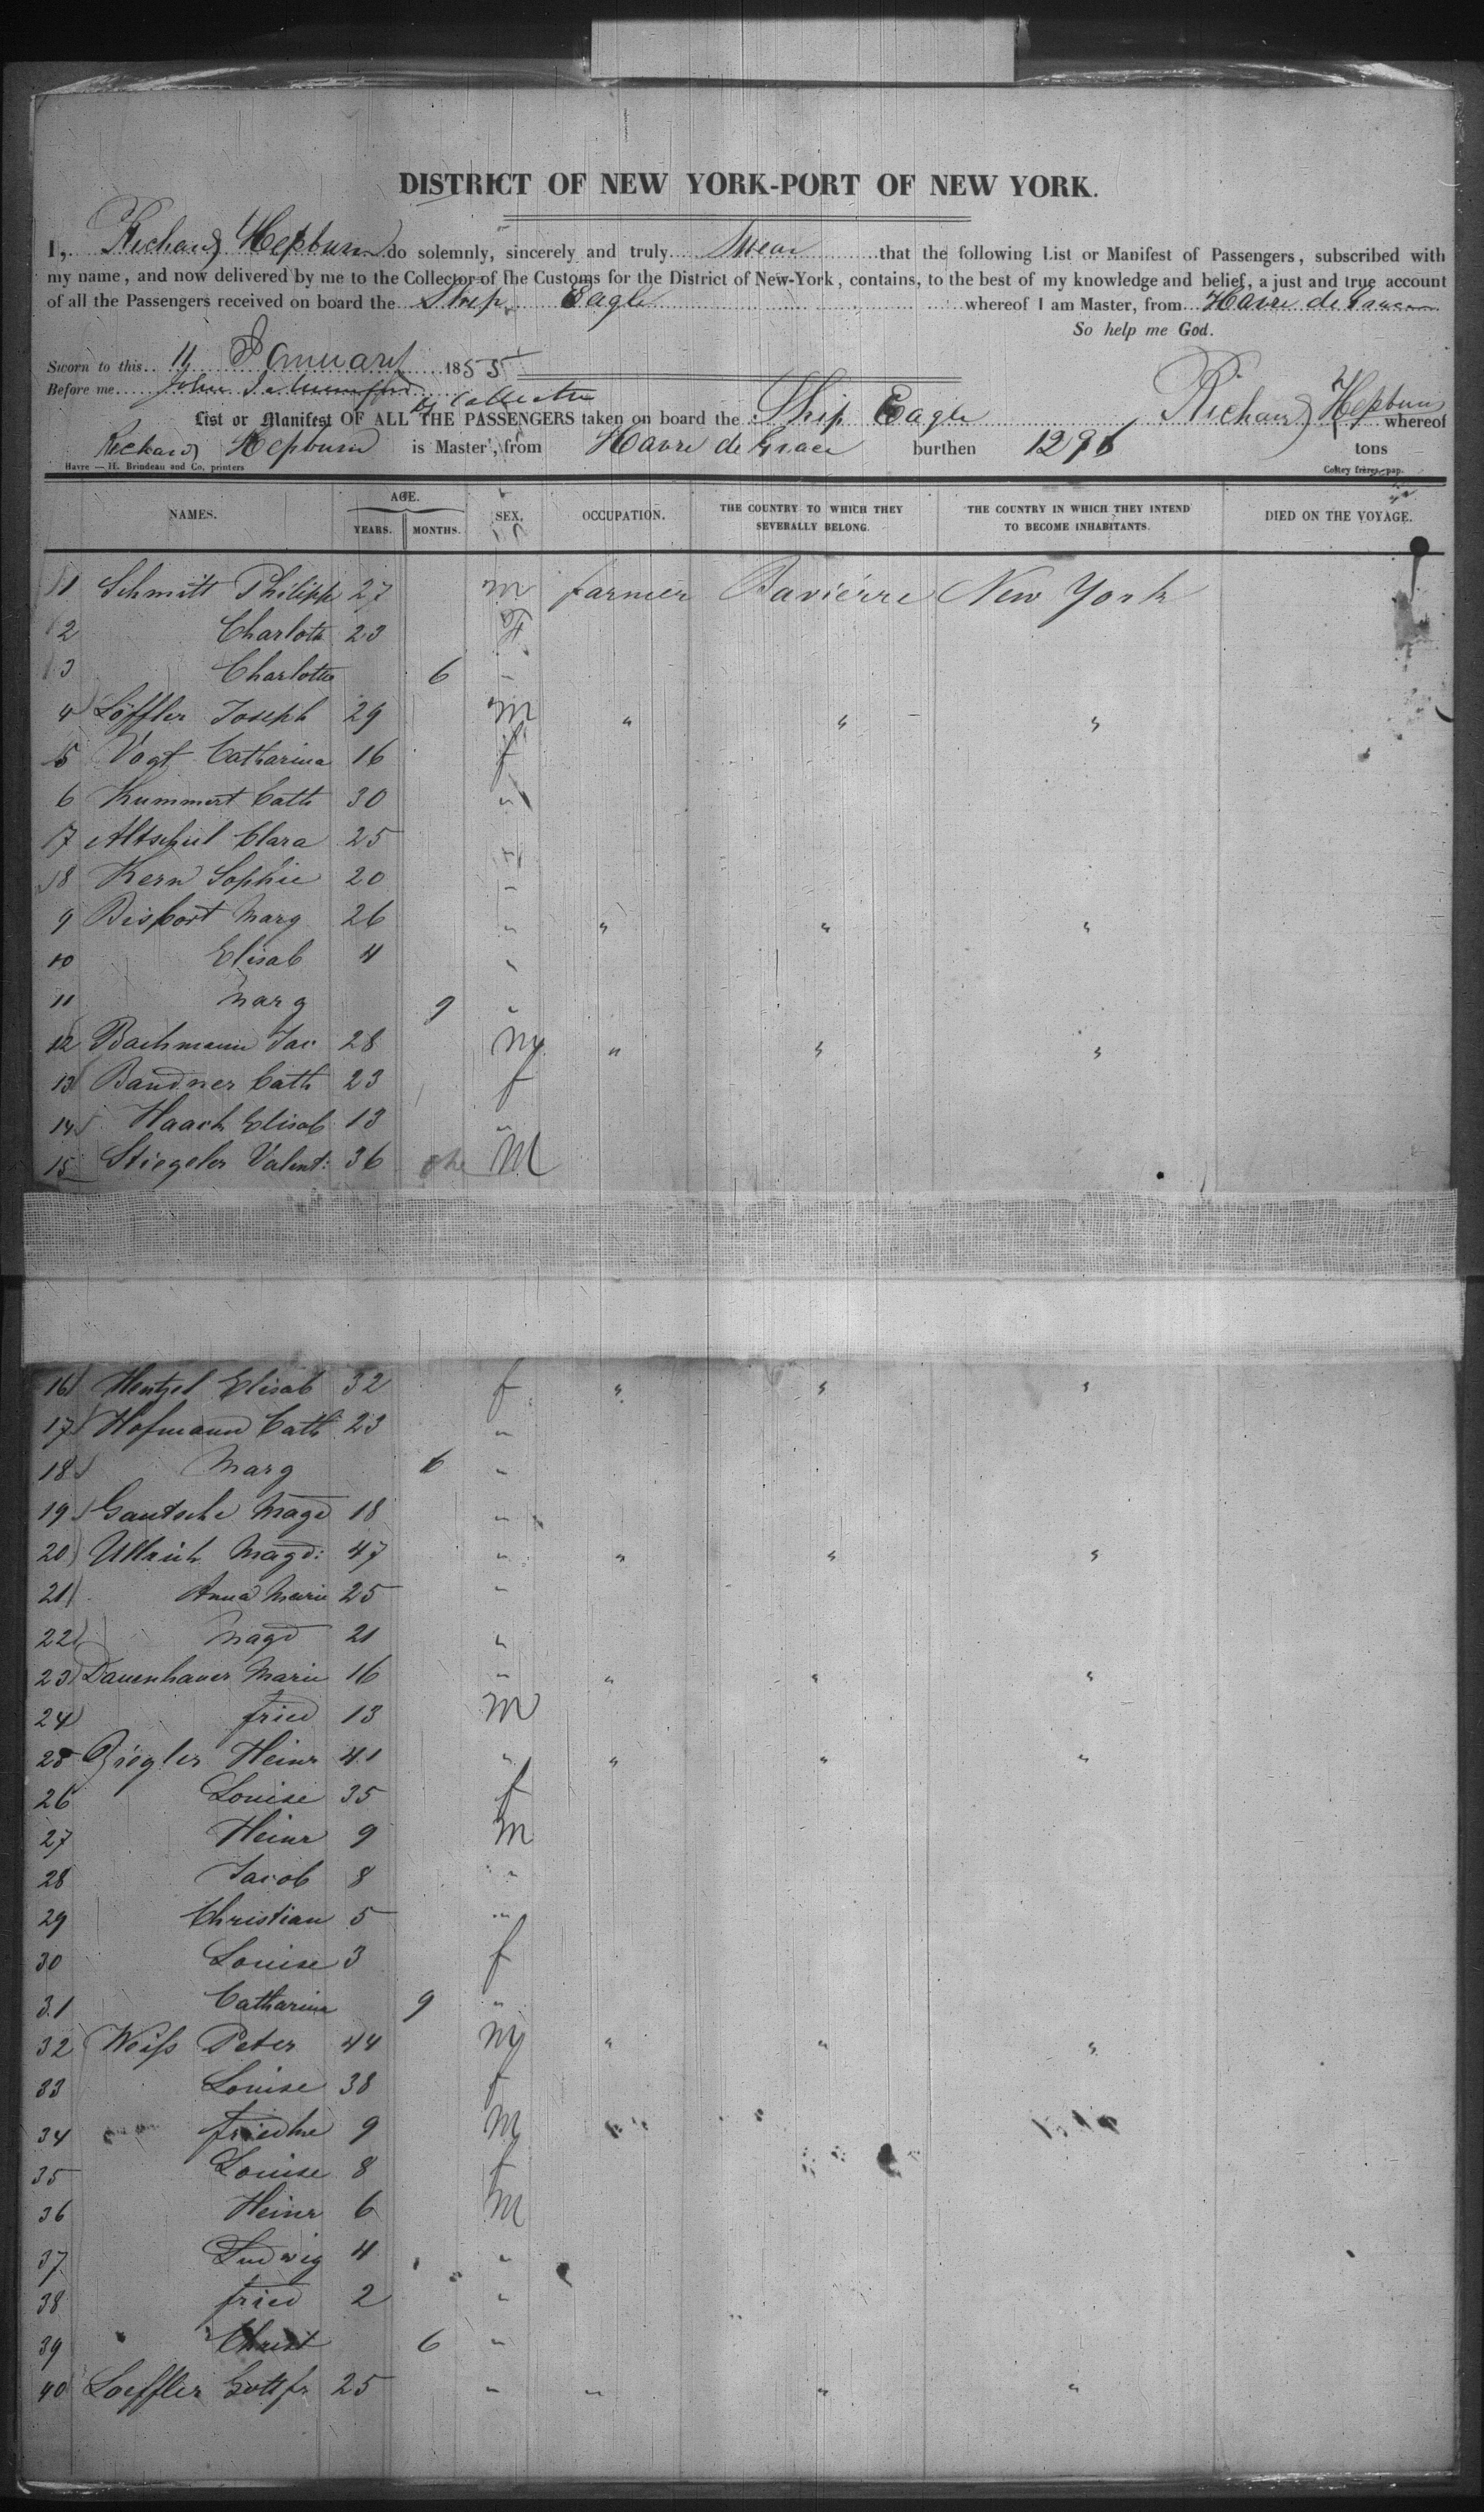 DISTRICT OF NEW YORK-PORT OF NEW YORK.
I, Richard Hepburn do solemnly, sincerely and truly swear that the following List or Manifest of Passengers, subscribed with
my name, and now delivered by me to the Collector of the Customs for the District of New-York, contains, to the best of my knowledge and belief, a just and true account
of all the Passengers received on board the Ship Eagle whereof I am Master, from Havre de Grace
So help me God.
Sworn to this 11 January 1855
Before me John
Collector
Richard Hepburn
List or Manifest OF ALL THE PASSENGERS taken on board the Ship Eagle whereof
Richard Hepburn is Master, from Havre de Grace burthen 1296 tons
Havre — H. Brindeau and Co, printers
NAMES. AGE. SEX. OCCUPATION. THE COUNTRY TO WHICH THEY THE COUNTRY IN WHICH THEY INTEND DIED ON THE VOYAGE.
YEARS. MONTHS. SEVERALLY BELONG. TO BECOME INHABITANTS.
1 Schmitt Philipp 27 m farmer Bavierre New York
2 Charlotte 23 f
3 Charlotte 6 "
4 Löffler Joseph 29 m " " "
5 Vogt Catharina 16 f
6 Kummert Cath 30 "
7 Altschul Clara 25 "
8 Kern Sophie 20 "
9 Bisbort Marg 26 " " " "
10 Elisab 4 "
11 Marg 9 "
12 Bachmann Jac 28 m " " "
13 Bandner Cath 23 f
14 Haach Elisab 13 "
15 Stiegeler Valent: 36 M
16 Hentzel Elisab 32 f " " "
17 Hofmann Cath 23 "
18 Marg 6 "
19 Gautsche Magd 18 "
20 Ullrich Magd: 47 " " " "
21 Anna Marie 25 "
22 Magd 21 "
23 Dauenhauer Marie 16 " " " "
24 fried 13 m
25 Ziegler Heinr 41 " " " "
26 Louise 35 f
27 Heinr 9 m
28 Jacob 8 "
29 Christian 5 "
30 Louise 3 f
31 Catharina 9 "
32 Weiss Peter 44 m " " "
33 Louise 38 f
34 friedhe 9 m
35 Louise 8 f
36 Heinr 6 m
37 Ludwig 4 "
38 fried 2 "
39 Christ 6 "
40 Loeffler Gottfr 25 " " " "